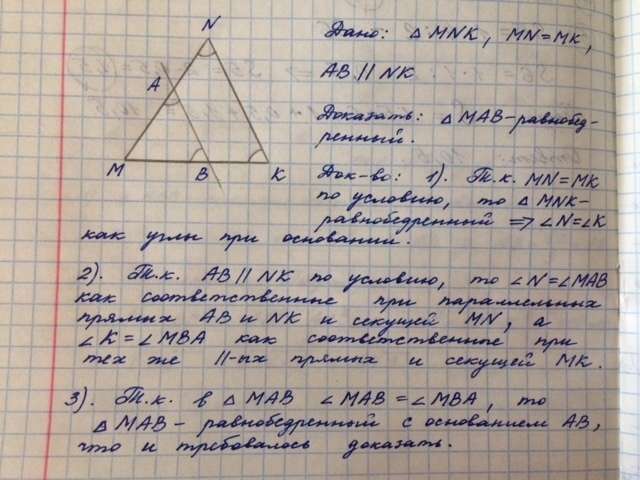 N
Дано: △ MNK, MN = MK,
A
AB || NK
Доказать: △ MAB – равнобед-
ренный.
M B K
Док-во: 1). Т.к. MN = MK
по условию, то △ MNK –
равнобедренный ⇒ ∠N = ∠K
как углы при основании.
2). Т.к. AB || NK по условию, то ∠N = ∠MAB
как соответственные при параллельных
прямых AB и NK и секущей MN, а
∠K = ∠MBA как соответственные при
тех же ||-ых прямых и секущей MK.
3). Т.к. в △ MAB ∠MAB = ∠MBA, то
△ MAB – равнобедренный с основанием AB,
что и требовалось доказать.